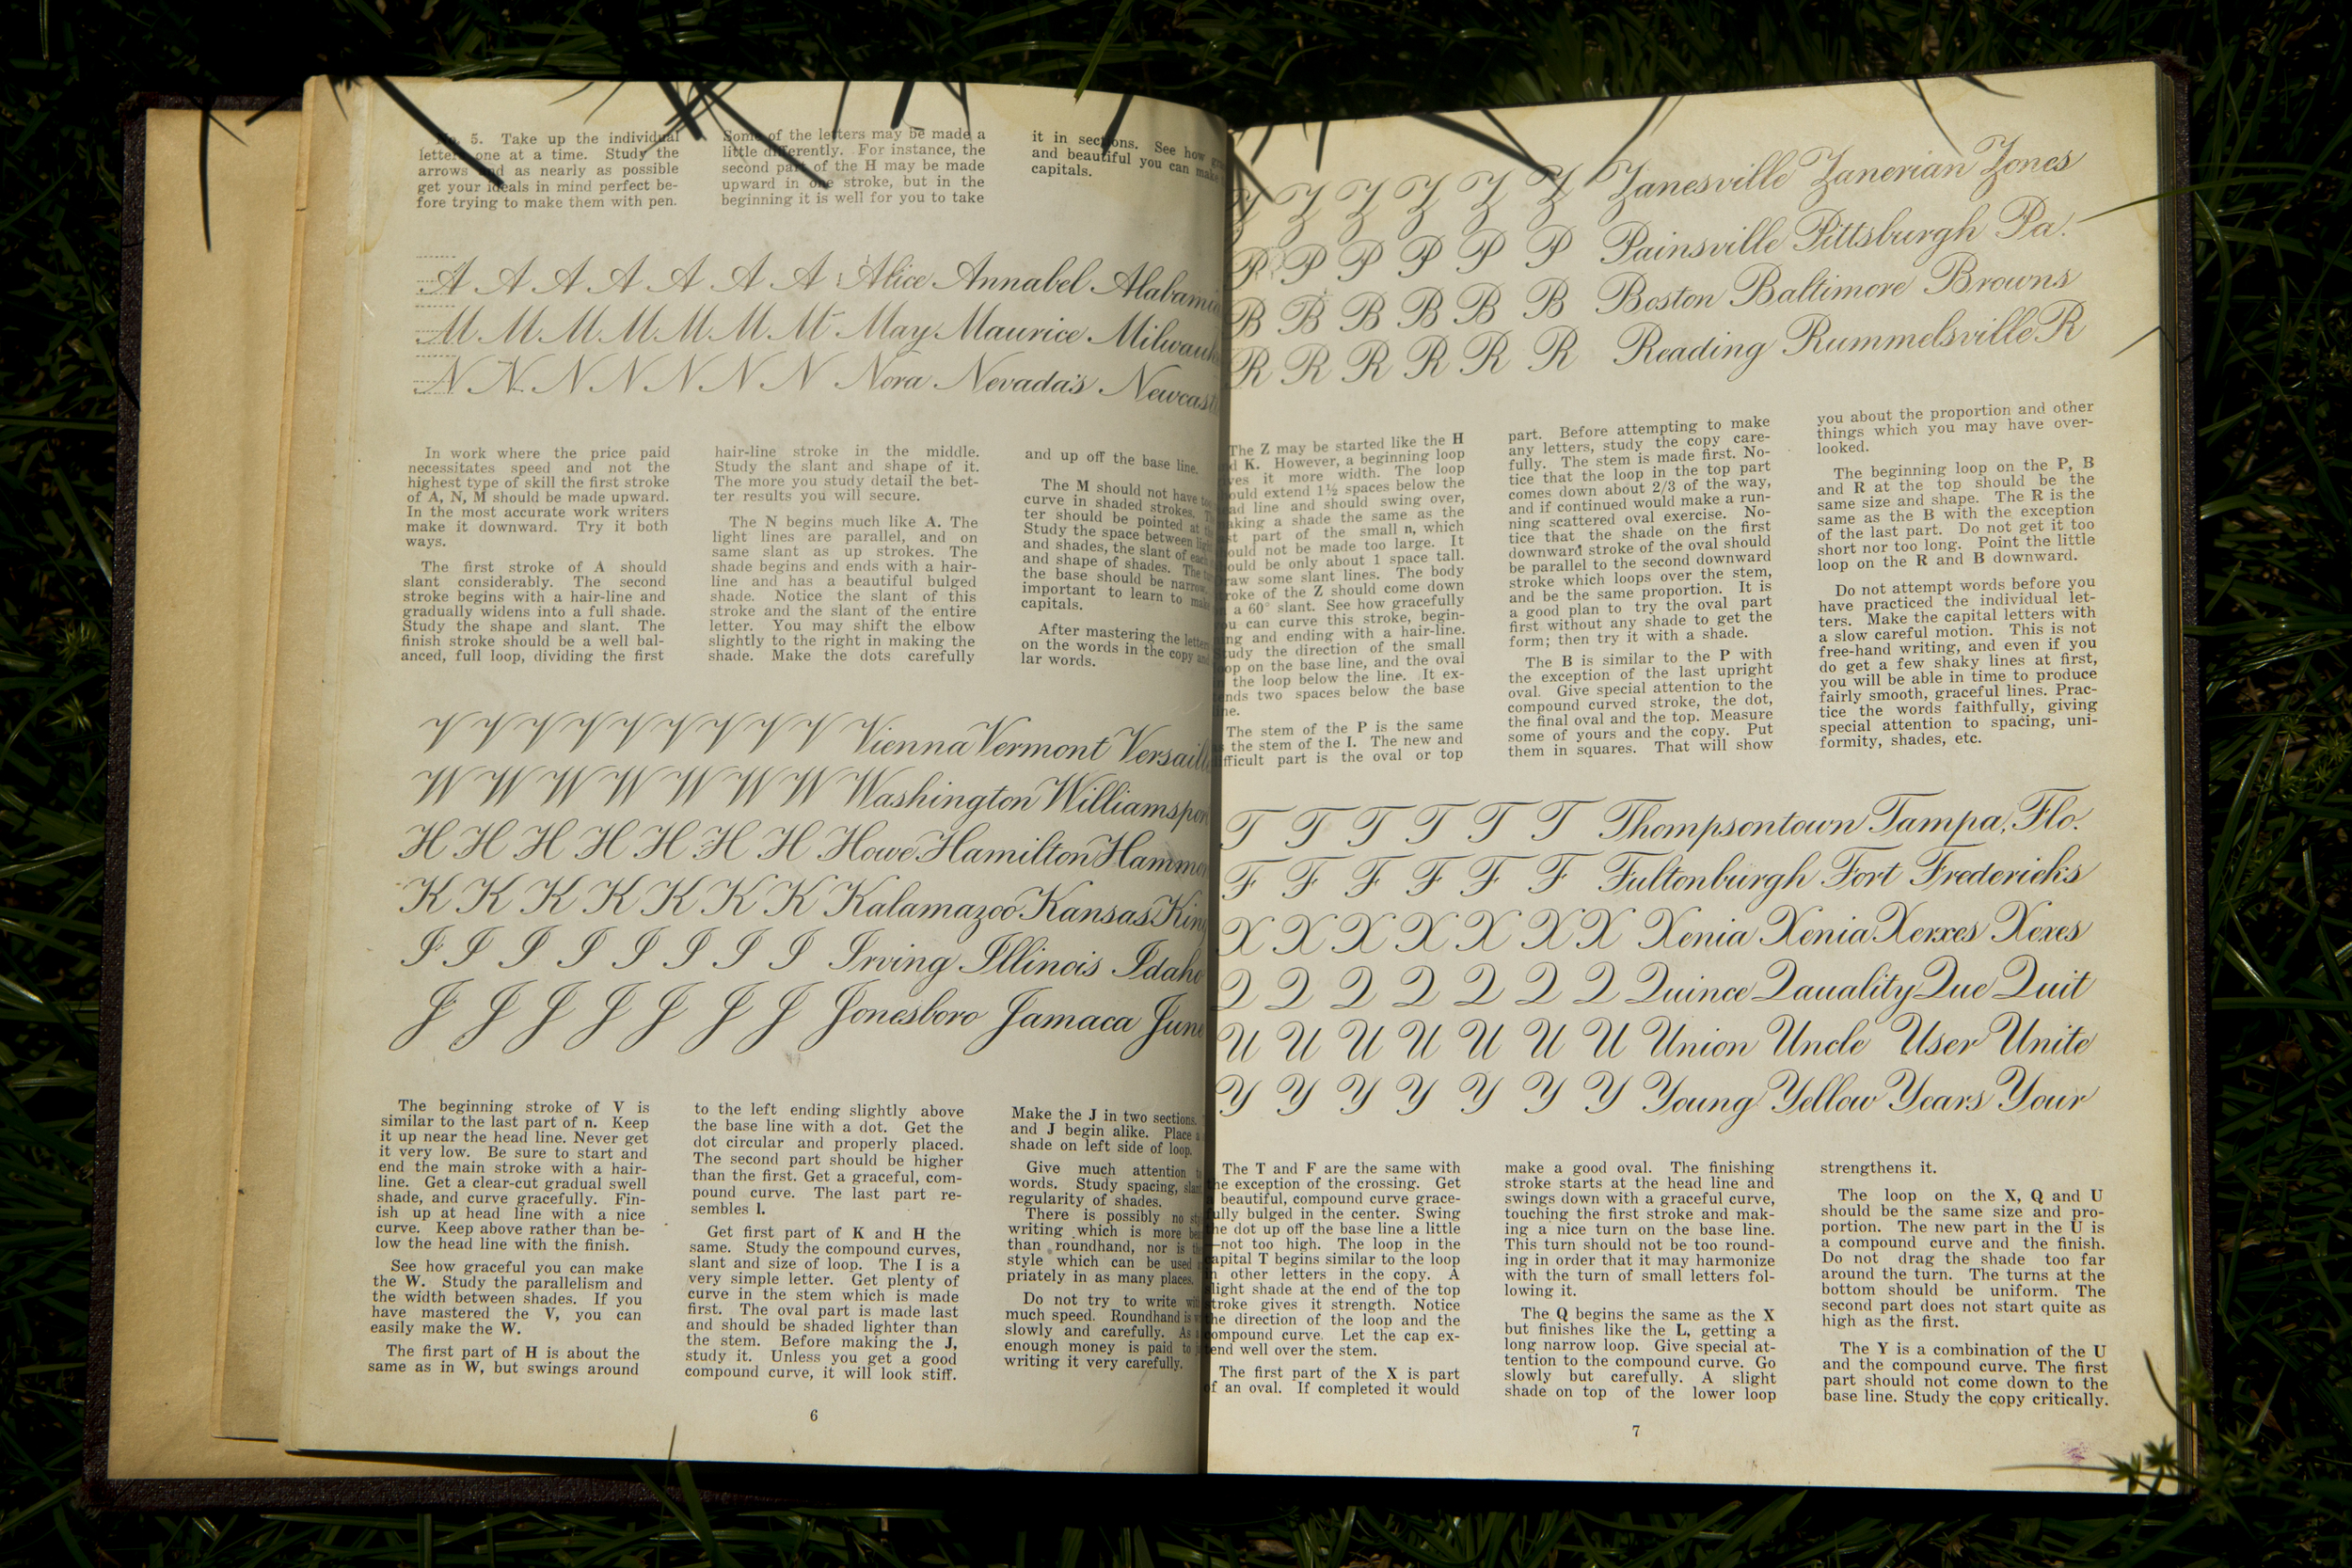 No. 5. Take up the individual
letters one at a time. Study the
arrows and as nearly as possible
get your ideals in mind perfect be-
fore trying to make them with pen.
Some of the letters may be made a
little differently. For instance, the
second part of the H may be made
upward in one stroke, but in the
beginning it is well for you to take
it in sections. See how
and beautiful you can make
capitals.
A A A A A A A Alice Annabel Alabama
M M M M M M M May Maurice Milwauk
N N N N N N N Nora Nevada's Newcast
In work where the price paid
necessitates speed and not the
highest type of skill the first stroke
of A, N, M should be made upward.
In the most accurate work writers
make it downward. Try it both
ways.
The first stroke of A should
slant considerably. The second
stroke begins with a hair-line and
gradually widens into a full shade.
Study the shape and slant. The
finish stroke should be a well bal-
anced, full loop, dividing the first
hair-line stroke in the middle.
Study the slant and shape of it.
The more you study detail the bet-
ter results you will secure.
The N begins much like A. The
light lines are parallel, and on
same slant as up strokes. The
shade begins and ends with a hair-
line and has a beautiful bulged
shade. Notice the slant of this
stroke and the slant of the entire
letter. You may shift the elbow
slightly to the right in making the
shade. Make the dots carefully
and up off the base line.
The M should not have
curve in shaded strokes.
ter should be pointed at
Study the space between
and shades, the slant of each
and shape of shades. The
the base should be narrow,
important to learn to make
capitals.
After mastering the letters
on the words in the copy and
lar words.
V V V V V V V V Vienna Vermont Versaill
W W W W W W W Washington Williamspor
H H H H H H H Howe Hamilton Hammo
K K K K K K K Kalamazoo Kansas King
I I I I I I I I Irving Illinois Idaho
J J J J J J J Jonesboro Jamaca June
The beginning stroke of V is
similar to the last part of n. Keep
it up near the head line. Never get
it very low. Be sure to start and
end the main stroke with a hair-
line. Get a clear-cut gradual swell
shade, and curve gracefully. Fin-
ish up at head line with a nice
curve. Keep above rather than be-
low the head line with the finish.
See how graceful you can make
the W. Study the parallelism and
the width between shades. If you
have mastered the V, you can
easily make the W.
The first part of H is about the
same as in W, but swings around
to the left ending slightly above
the base line with a dot. Get the
dot circular and properly placed.
The second part should be higher
than the first. Get a graceful, com-
pound curve. The last part re-
sembles l.
Get first part of K and H the
same. Study the compound curves,
slant and size of loop. The I is a
very simple letter. Get plenty of
curve in the stem which is made
first. The oval part is made last
and should be shaded lighter than
the stem. Before making the J,
study it. Unless you get a good
compound curve, it will look stiff.
Make the J in two sections.
and J begin alike. Place a
shade on left side of loop.
Give much attention to
words. Study spacing, slant
regularity of shades.
There is possibly no
writing which is more
than roundhand, nor is
style which can be used
priately in as many places.
Do not try to write with
much speed. Roundhand is
slowly and carefully. As a
enough money is paid to
writing it very carefully.
6
Z Z Z Z Z Z Zanesville Zanerian Zones
P P P P P P Painsville Pittsburgh Pa.
B B B B B B Boston Baltimore Browns
R R R R R R Reading Rummelsville R
The Z may be started like the H
K. However, a beginning loop
it more width. The loop
should extend 1½ spaces below the
line and should swing over,
making a shade the same as the
part of the small n, which
should not be made too large. It
should be only about 1 space tall.
Draw some slant lines. The body
stroke of the Z should come down
a 60° slant. See how gracefully
you can curve this stroke, begin-
ning and ending with a hair-line.
Study the direction of the small
loop on the base line, and the oval
the loop below the line. It ex-
tends two spaces below the base
line.
The stem of the P is the same
the stem of the I. The new and
difficult part is the oval or top
part. Before attempting to make
any letters, study the copy care-
fully. The stem is made first. No-
tice that the loop in the top part
comes down about 2/3 of the way,
and if continued would make a run-
ning scattered oval exercise. No-
tice that the shade on the first
downward stroke of the oval should
be parallel to the second downward
stroke which loops over the stem,
and be the same proportion. It is
a good plan to try the oval part
first without any shade to get the
form; then try it with a shade.
The B is similar to the P with
the exception of the last upright
oval. Give special attention to the
compound curved stroke, the dot,
the final oval and the top. Measure
some of yours and the copy. Put
them in squares. That will show
you about the proportion and other
things which you may have over-
looked.
The beginning loop on the P, B
and R at the top should be the
same size and shape. The R is the
same as the B with the exception
of the last part. Do not get it too
short nor too long. Point the little
loop on the R and B downward.
Do not attempt words before you
have practiced the individual let-
ters. Make the capital letters with
a slow careful motion. This is not
free-hand writing, and even if you
do get a few shaky lines at first,
you will be able in time to produce
fairly smooth, graceful lines. Prac-
tice the words faithfully, giving
special attention to spacing, uni-
formity, shades, etc.
T T T T T T Thompsontown Tampa, Flo.
F F F F F F Fultonburgh Fort Fredericks
X X X X X X X Xenia Xenia Xerxes Xexes
Q Q Q Q Q Q Q Quince Qauality Que Quit
U U U U U U U Union Uncle User Unite
Y Y Y Y Y Y Y Young Yellow Years Your
The T and F are the same with
the exception of the crossing. Get
beautiful, compound curve grace-
fully bulged in the center. Swing
the dot up off the base line a little
—not too high. The loop in the
capital T begins similar to the loop
in other letters in the copy. A
slight shade at the end of the top
stroke gives it strength. Notice
the direction of the loop and the
compound curve. Let the cap ex-
tend well over the stem.
The first part of the X is part
of an oval. If completed it would
make a good oval. The finishing
stroke starts at the head line and
swings down with a graceful curve,
touching the first stroke and mak-
ing a nice turn on the base line.
This turn should not be too round-
ing in order that it may harmonize
with the turn of small letters fol-
lowing it.
The Q begins the same as the X
but finishes like the L, getting a
long narrow loop. Give special at-
tention to the compound curve. Go
slowly but carefully. A slight
shade on top of the lower loop
strengthens it.
The loop on the X, Q and U
should be the same size and pro-
portion. The new part in the U is
a compound curve and the finish.
Do not drag the shade too far
around the turn. The turns at the
bottom should be uniform. The
second part does not start quite as
high as the first.
The Y is a combination of the U
and the compound curve. The first
part should not come down to the
base line. Study the copy critically.
7